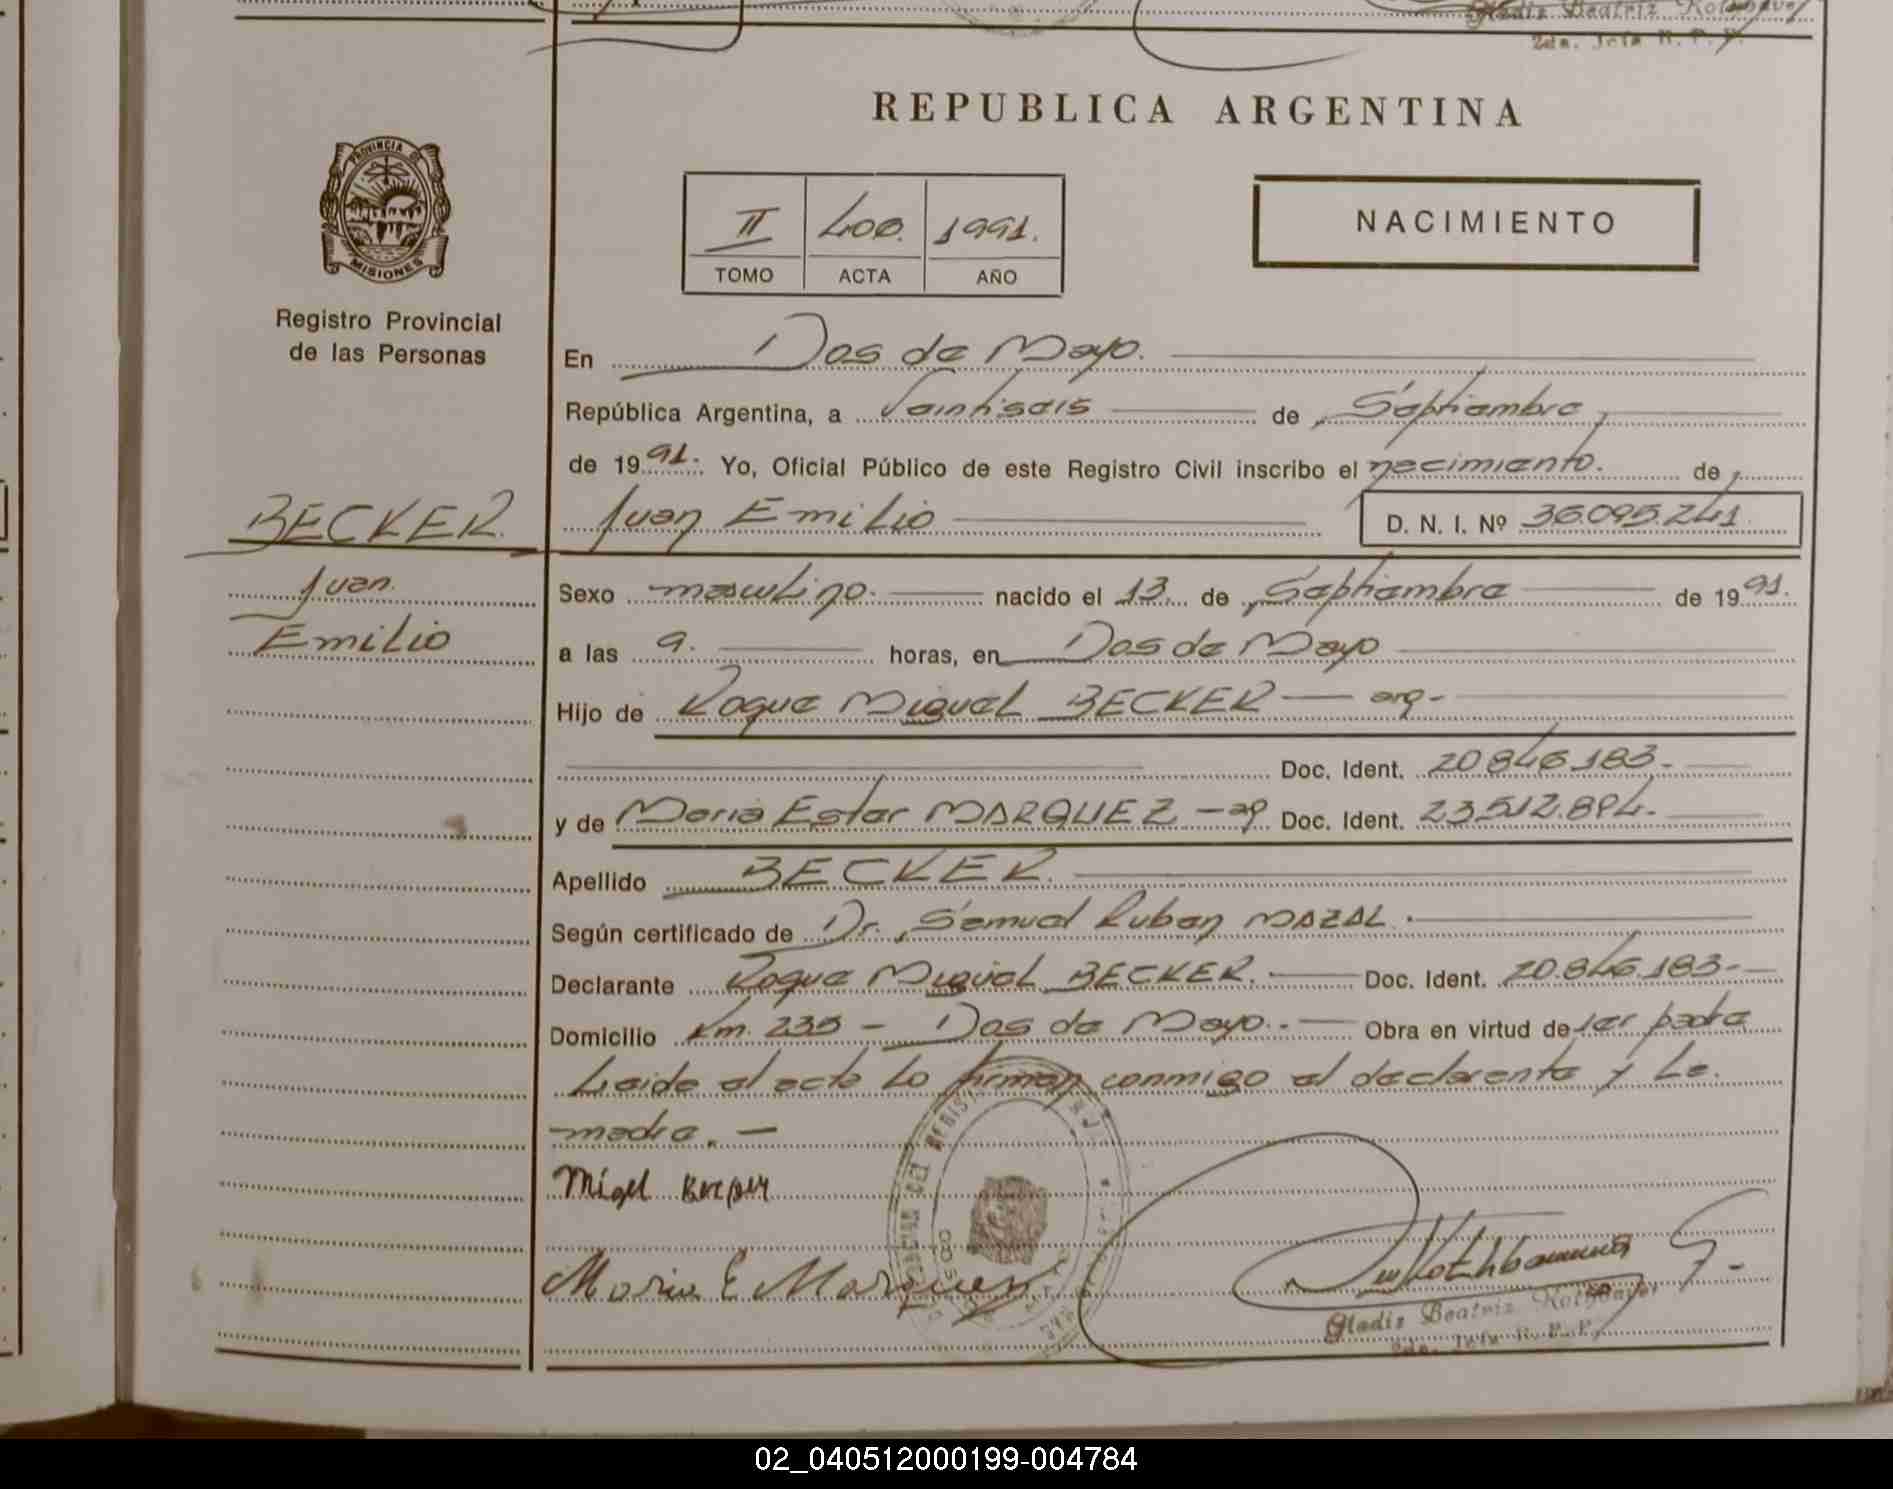 Gladiz Beatriz Rothbauer
2da. Jefa R. P. P.
REPUBLICA ARGENTINA
PROVINCIA DE
MISIONES
Registro Provincial
de las Personas
II 400. 1991.
TOMO ACTA AÑO
NACIMIENTO
En Dos de Mayo.
República Argentina, a Veintiseis de Septiembre
de 1991. Yo, Oficial Público de este Registro Civil inscribo el nacimiento. de
BECKER. Juan Emilio D. N. I. Nº 36.095.241
Juan. Sexo masculino. nacido el 13. de Septiembre de 1991.
Emilio a las 9. horas, en Dos de Mayo
Hijo de Roque Miguel BECKER — arg-
Doc. Ident. 20.846.183-
y de Maria Ester MARQUEZ - ag Doc. Ident. 23.512.894-
Apellido BECKER.
Según certificado de Dr. Samuel Ruben MAZAL.
Declarante Roque Miguel BECKER. Doc. Ident. 20.846.183-
Domicilio Km. 235 - Dos de Mayo.- Obra en virtud de ser padre
Leida el acta lo firman conmigo el declarante y la
madre. -
Migel
Maria E Marquez
Gladiz Beatriz Rothbauer
2da. Jefa R. P. P.
02_040512000199-004784